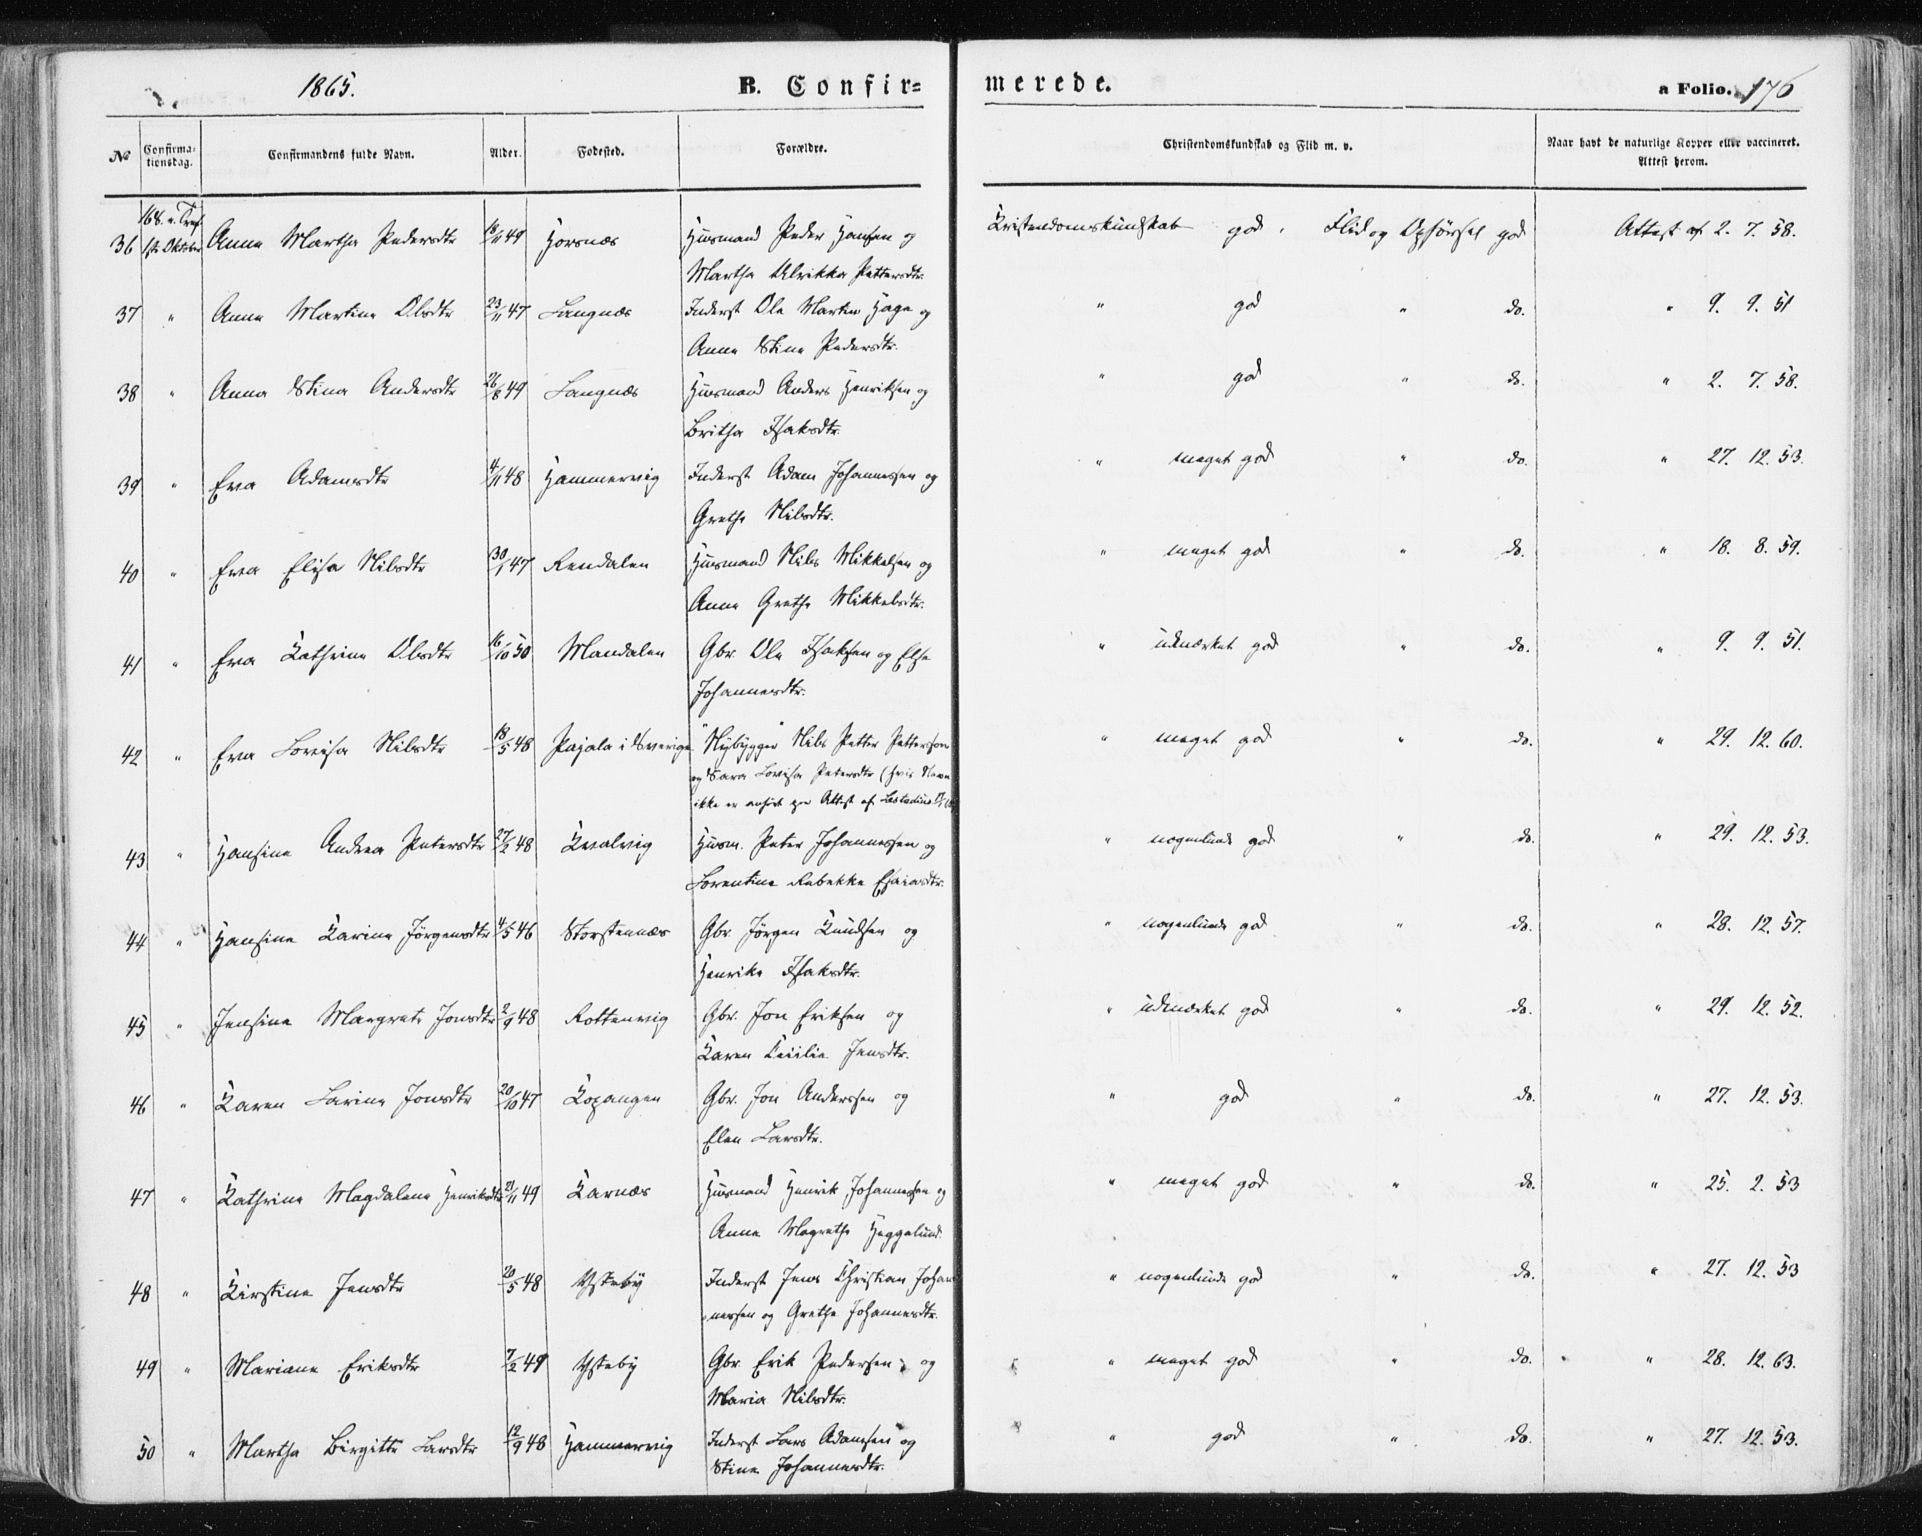 1865.
B. Confirmerede.
a Folio. 176
No
Confirmationsdag.
Confirmandens fulde Navn.
Alder.
Fødested.
Forældre.
Christendomskundskab og Flid m. v.
Naar havt de naturlige Kopper eller vaccineret. Attest herom.
36 1ste Oktober Anne Martha Pedersdtr 49 Horsnæs Husmand Peder Hansen og Kristendomskundskab god, Flid og Opførsel god Attest af 2. 7. 58.
Martha Ulrikka Pettersdtr.
37 " Anne Martine Olsdtr 23/11 47 Langnæs Inderst Ole Martin Hage og " god " do. " 9. 9. 51
Anne Stine Pedersdtr.
38 " Anna Stina Andersdtr 26/8 49 Langnæs Husmand Anders Henriksen og " god " do. " 2. 7. 58.
Britha Isaksdtr.
39 " Eva Adamsdtr 4/11 48 Hammervig Inderst Adam Johannessen og " meget god " do. " 27. 12. 53.
Grethe Nilsdtr.
40 " Eva Elisa Nilsdtr 30/1 47 Rendalen Husmand Nils Mikkelsen og " meget god " do. " 18. 8. 59.
Anne Grethe Mikkelsdtr.
41 " Eva Kathrine Olsdtr 16/10 50 Mandalen Gbr. Ole Isaksen og Else " udmærket god " do. " 9. 9. 51.
Johannesdtr.
42 " Eva Lovisa Nilsdtr 18/5 48 Pajala i Sverige "Nybygger" Nils Petter Pettersson " meget god " do. " 29. 12. 60.
og Sara Lovisa Petersdtr (hvis Navn
ikke er anført paa Attest af Læstadius
43 " Hansine Andrea Petersdtr 27/2 48 Kvalvig Husm. Peter Johannessen og " nogenlunde god " do. " 29. 12. 53.
Lorentine Rebekke Esaiasdtr.
44 " Hansine Karine Jörgensdtr 4/5 46 Storstennæs Gbr. Jörgen Knudsen og " nogenlunde god " do. " 28. 12. 57.
Henrike Isaksdtr.
45 " Jensine Margrete Jonsdtr 2/9 48 Rottenvig Gbr. Jon Eriksen og " udmærket god " do. " 29. 12. 52.
Karen Cecilie Jensdtr.
46 " Karen Larine Jonsdtr 20/10 47 Kopangen Gbr. Jon Anderssen og " god " do. " 27. 12. 53.
Elen Larsdtr.
47 " Kathrine Magdalene Henriksdtr 21/11 49 Karnæs Husmand Henrik Johannessen og " meget god " do. " 25. 2. 53
Anne Magrethe Heggelund.
48 " Kirstine Jensdtr 20/5 48 Ysteby Inderst Jens Christian Johan- " nogenlunde god " do. " 27. 12. 53
nessen og Grethe Johannesdtr.
49 " Mariane Eriksdtr 7/2 49 Ysteby Gbr. Erik Pedersen og " meget god " do. " 28. 12. 63.
Maria Nilsdtr.
50 " Martha Birgitte Larsdtr 12/9 48 Hammervig Inderst Lars Adamsen og " god " do. " 27. 12. 53.
Stine Johannesdtr.